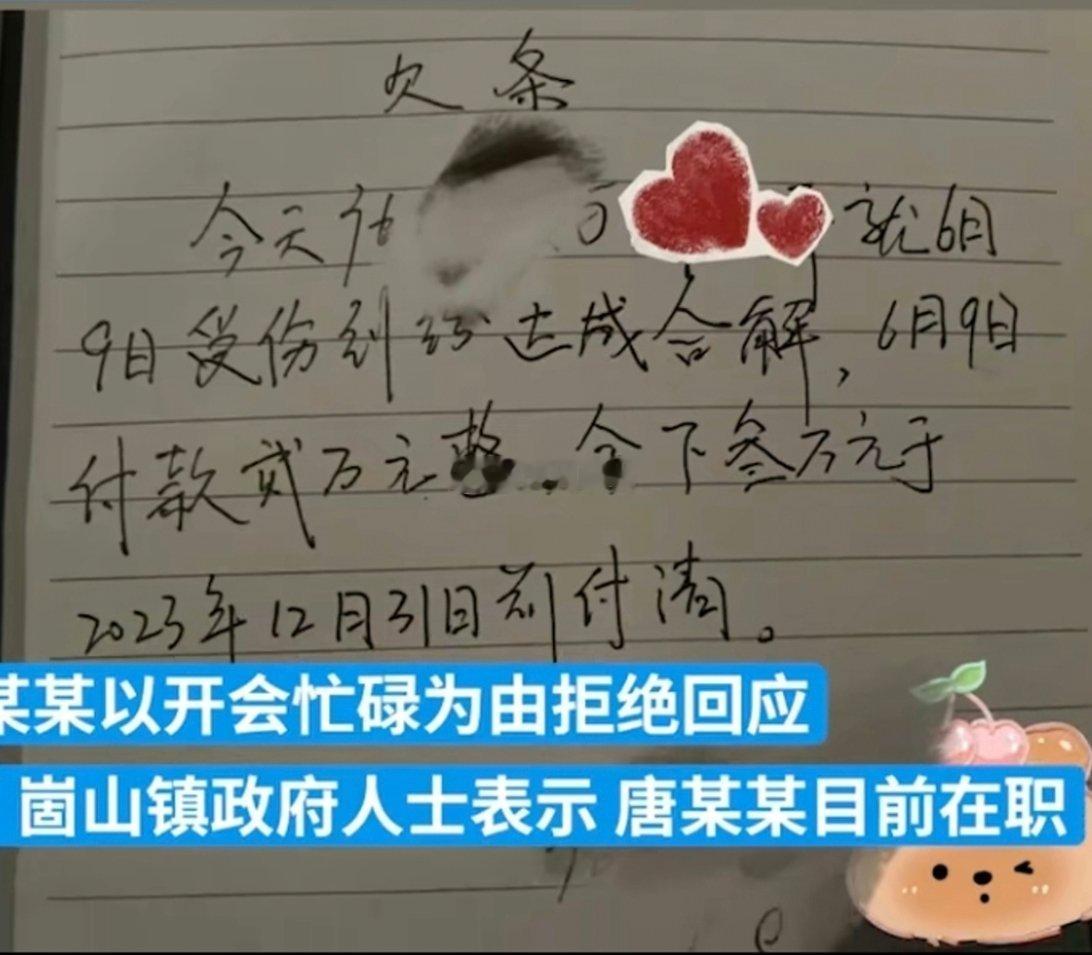 欠条
今天 就6月
9日受伤纠纷达成合解，6月9日
付款贰万元整 余下叁万元于
2023年12月31日前付清。
某某以开会忙碌为由拒绝回应
崮山镇政府人士表示 唐某某目前在职